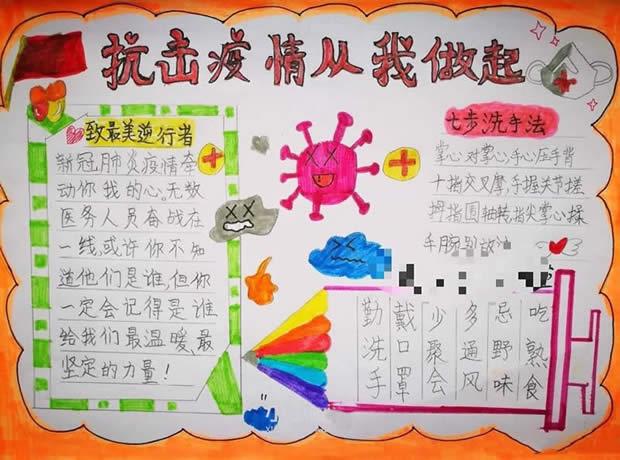 抗击疫情从我做起
致最美逆行者
新冠肺炎疫情牵
动你我的心。无数
医务人员奋战在
一线,或许你不知
道他们是谁,但你
一定会记得是谁
给我们最温暖、最
坚定的力量!
七步洗手法
掌心对掌心,手心压手背
十指交叉摩,手握关节搓
拇指围轴转,指尖掌心揉
手腕别放
勤洗手
戴口罩
少聚会
多通风
忌野味
吃熟食